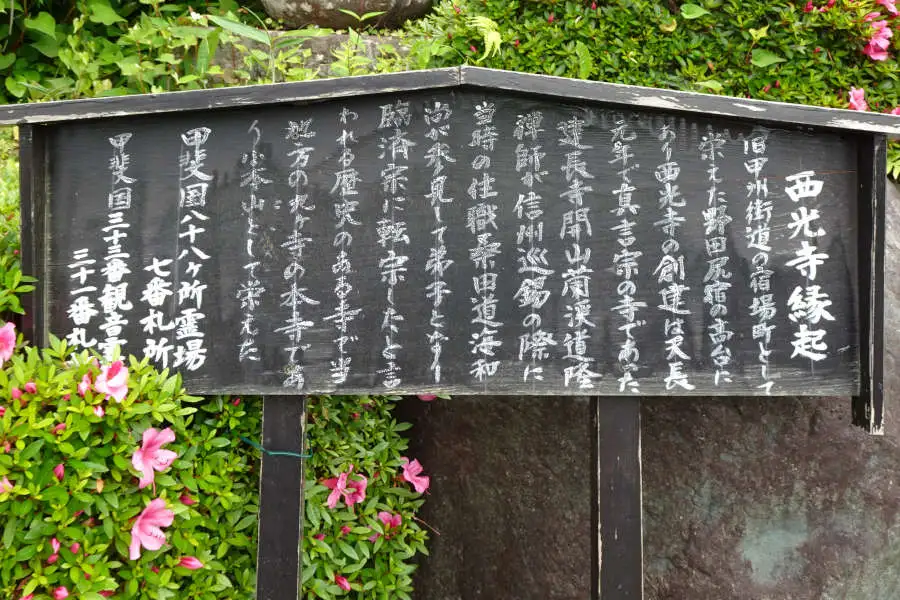 西光寺縁起
旧甲州街道の宿場町として
栄えた野田尻宿の高台に
あり西光寺の創建は天長
元年で真言宗の寺であった
建長寺開山蘭渓道隆
禅師が信州巡錫の際に
当時の住職桑田道海和
尚が参見して弟子となり
臨済宗に転宗したと言
われる歴史のある寺で当
地方の九ヶ寺の本寺であ
り小本山として栄えた
甲斐国八十八ヶ所霊場
七番札所
甲斐国三十三番観音
三十一番札